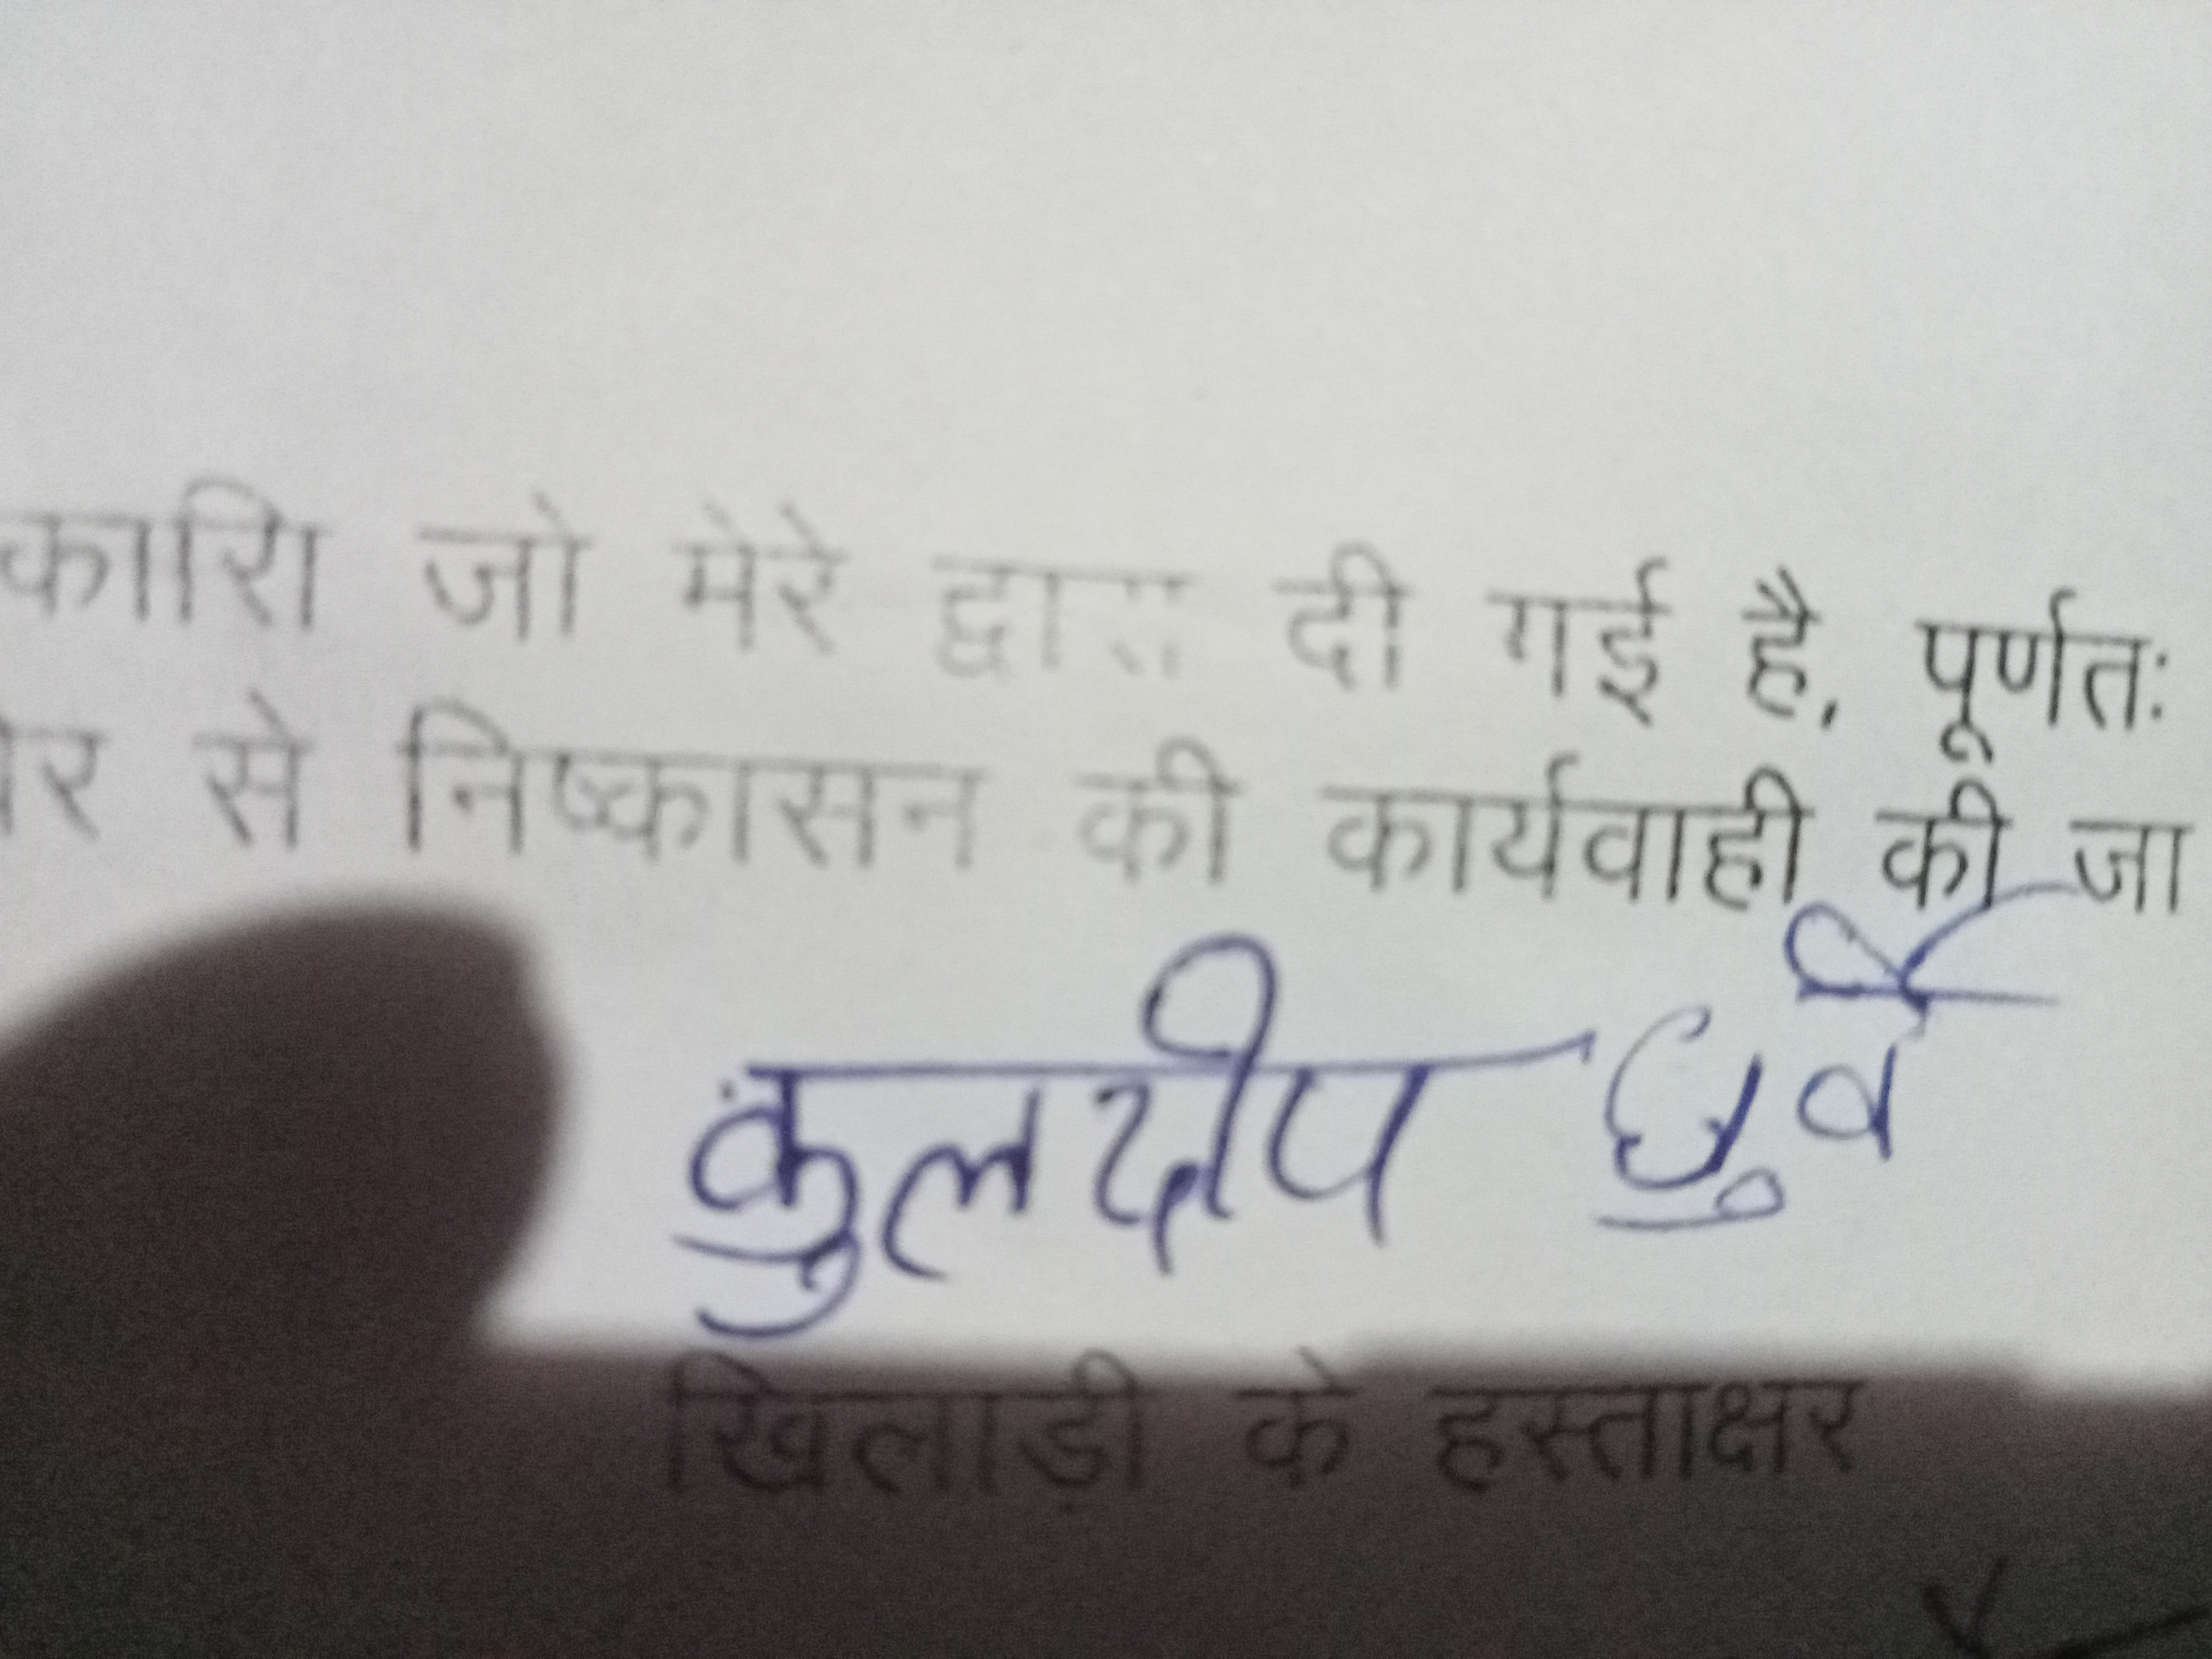 जो मेरे द्वारा दी गई है, पूर्णतः
से निष्कासन की कार्यवाही की जा
कुलदीप धुर्वे
खिलाड़ी के हस्ताक्षर